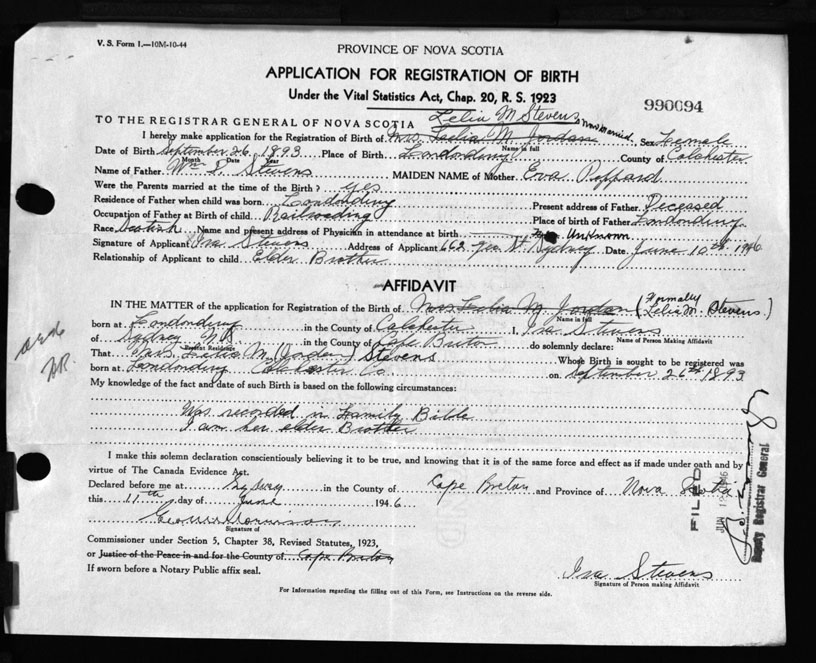 V. S. Form 1.—10M-10-44
PROVINCE OF NOVA SCOTIA
APPLICATION FOR REGISTRATION OF BIRTH
Under the Vital Statistics Act, Chap. 20, R. S. 1923
990094
Lelia M Stevens now married
TO THE REGISTRAR GENERAL OF NOVA SCOTIA
I hereby make application for the Registration of Birth of Mrs. Leelia M. Jordan Sex Female
Name in full
Date of Birth September 26 1893 Place of Birth Londonderry County of Colchester
Month Date Year
Name of Father Wm S. Stevens MAIDEN NAME of Mother Eva
Were the Parents married at the time of the Birth? yes
Residence of Father when child was born Londonderry Present address of Father Deceased
Occupation of Father at Birth of child Railroading Place of birth of Father Londonderry
Race Scotish Name and present address of Physician in attendance at birth Unknown
Signature of Applicant Ira Stevens Address of Applicant 662 Geo St. Sydney Date June 10th 1946
Relationship of Applicant to child Elder Brother
AFFIDAVIT
IN THE MATTER of the application for Registration of the Birth of Mrs Leelia M. Jordan (Formally Lelia M. Stevens.)
Name in full
born at Londonderry in the County of Colchester I, Ira Stevens
Name of Person Making Affidavit
of Sydney N.S. in the County of Cape Breton do solemnly declare:
Present Residence
That Mrs. Leelia M. Jordan Stevens Whose Birth is sought to be registered was
born at Londonderry Colchester Co. on September 26th 1893
My knowledge of the fact and date of such Birth is based on the following circumstances:
Was recorded in Family Bible
I am her elder Brother
I make this solemn declaration conscientiously believing it to be true, and knowing that it is of the same force and effect as if made under oath and by
virtue of The Canada Evidence Act.
Declared before me at Sydney in the County of Cape Breton and Province of Nova Scotia
this 11th day of June 1946
Signature of
Commissioner under Section 5, Chapter 38, Revised Statutes, 1923,
or Justice of the Peace in and for the County of Cape Breton
If sworn before a Notary Public affix seal.
Ira Stevens
Signature of Person making Affidavit
For Information regarding the filling out of this Form, see Instructions on the reverse side.
FILED
Deputy Registrar General